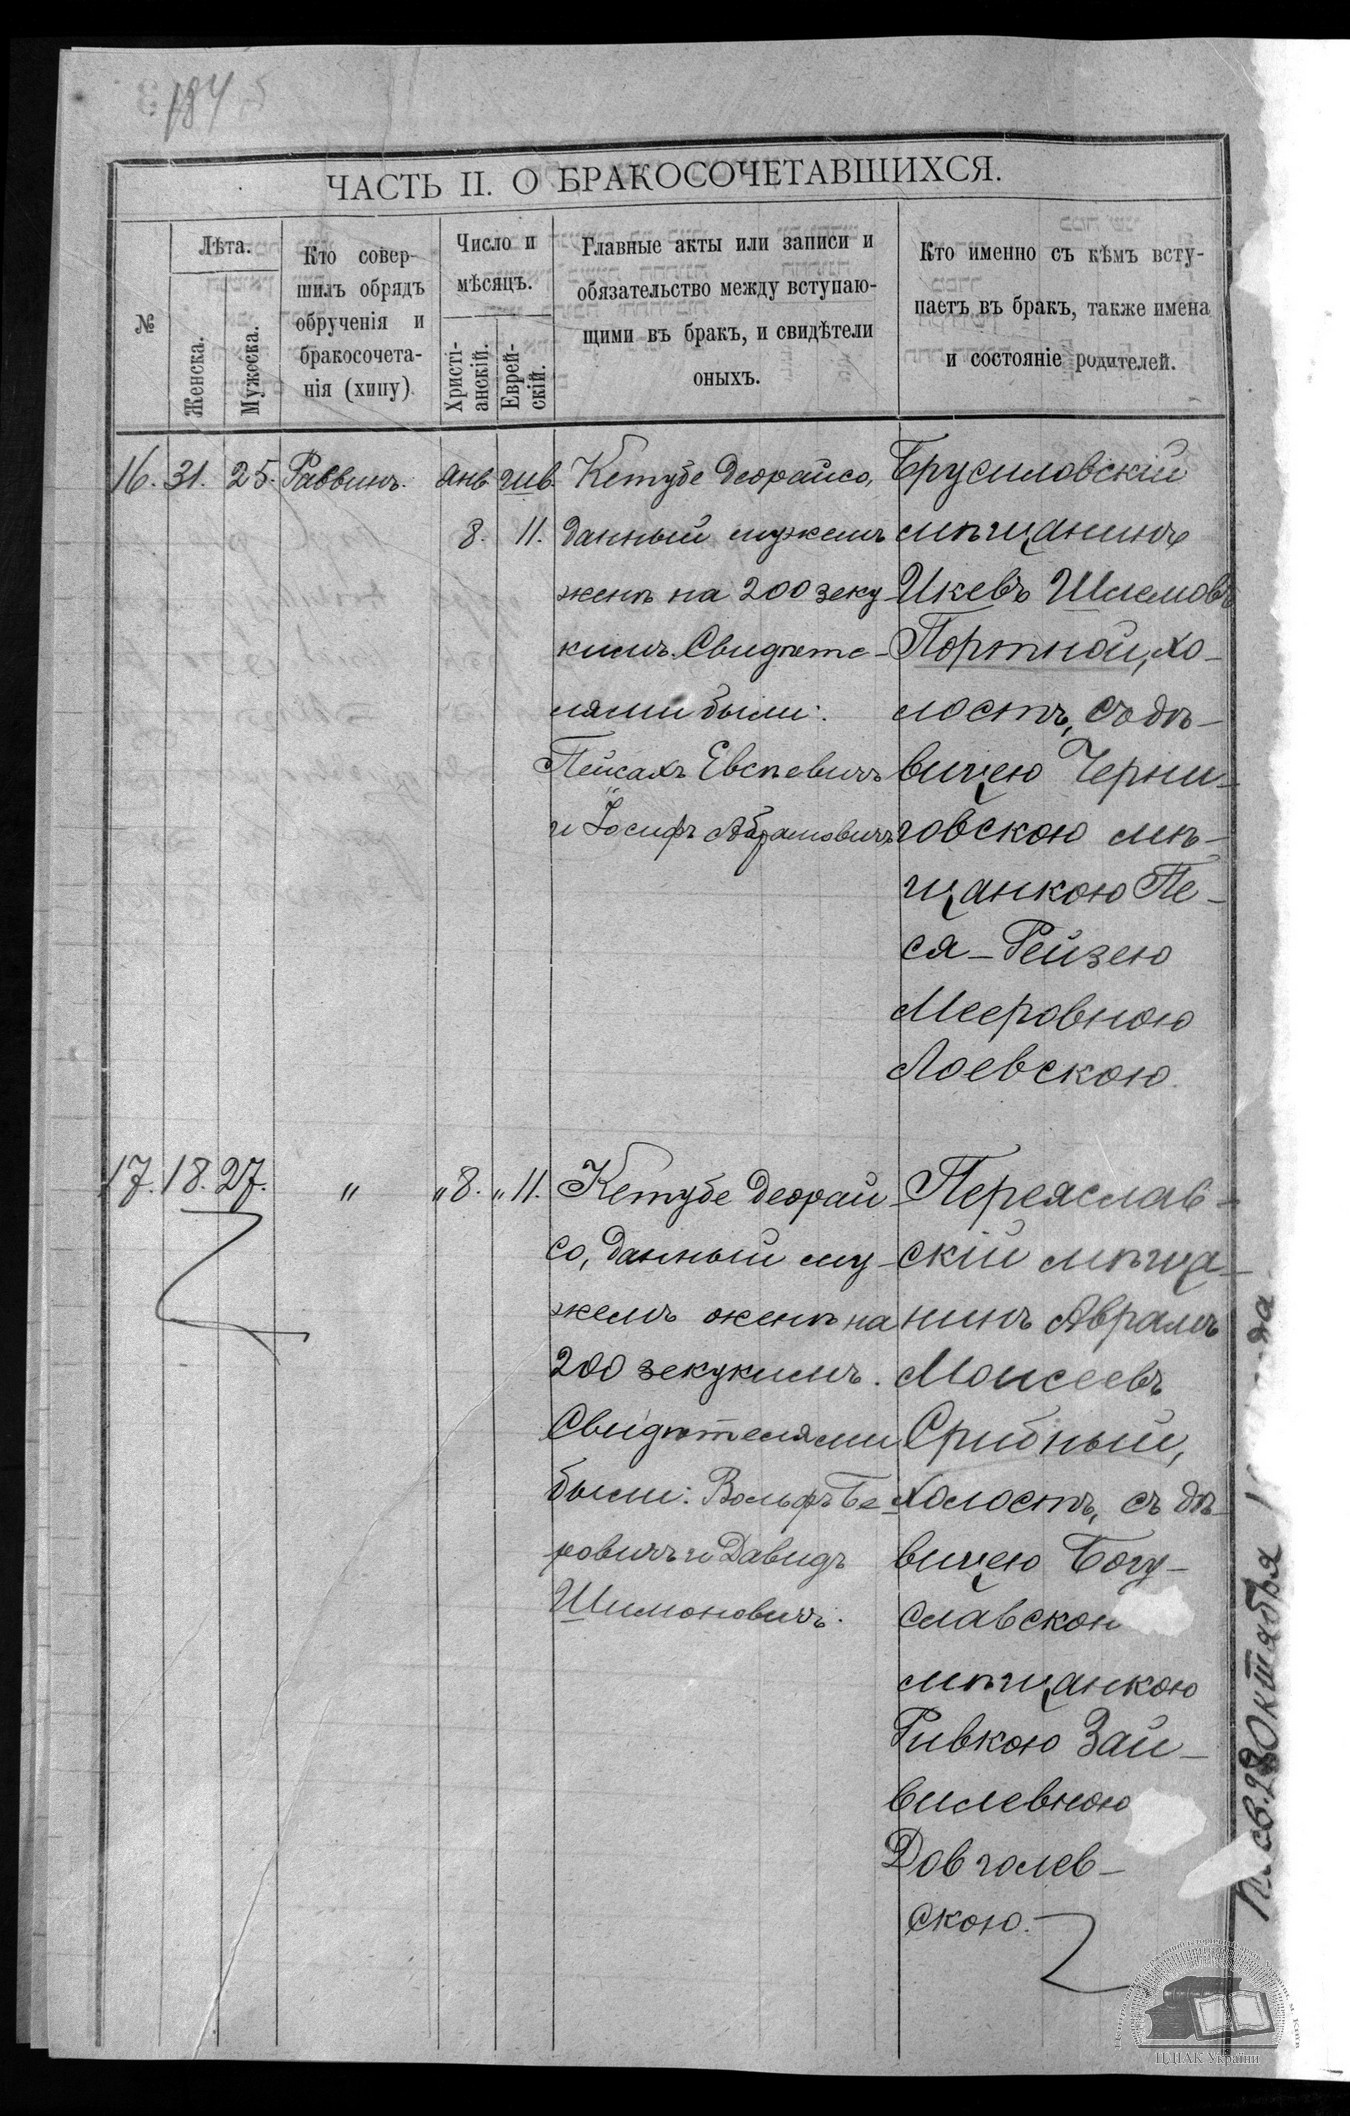 184
ЧАСТЬ II. О БРАКОСОЧЕТАВШИХСЯ.
№
Лѣта.
Женска.
Мужеска.
Кто совер-
шилъ обрядъ
обрученія и
бракосочета-
нія (хипу)
Число и
мѣсяцъ.
Христі-
анскій.
Еврей-
скій.
Главные акты или записи и
обязательство между вступаю-
щими въ бракъ, и свидѣтели
оныхъ.
Кто именно съ кѣмъ всту-
паетъ въ бракъ, также имена
и состояніе родителей.
16. 31. 25. Раввинъ. Янв. шв.
8. 11.
Кетубе деорайсо,
данный мужемъ
женѣ на 200 зеку
кимъ. Свидѣте-
лями были:
Пейсахъ Евсѣевичъ
и Іосифъ Абрамовичъ
Брусиловскій
мѣщанинъ
Икевъ Шлемовъ
Портной, хо-
лостъ, съ дѣ-
вицею Черни-
говскою мѣ-
щанкою Пе-
ся-Рейзею
Мееровною
Лоевскою.
17. 18. 27. " " 8. " 11.
Кетубе деорай-
со, данный му-
жемъ женѣ на
200 зекукимъ.
Свидѣтелями
были: Вольфъ Бе-
ровичъ и Давидъ
Шимоновичъ.
Переяслав-
скій мѣща-
нинъ Аврамъ
Моисеевъ
Срибный,
холостъ, съ дѣ-
вицею Богу-
славскою
мѣщанкою
Ривкою Зай-
вилевною
Довголев-
скою.
28 Октября
ЦДІАК України